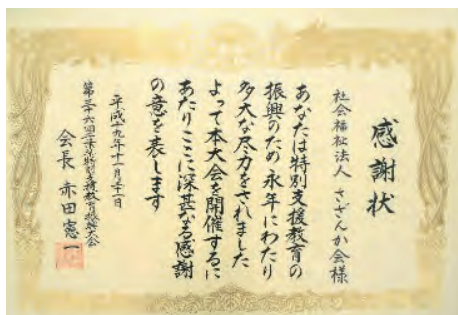 感謝状
社会福祉法人 さざんか会様
あなたは特別支援教育の
振興のため永年にわたり
多大な尽力をされました
よって本大会を開催するに
あたりここに深甚なる感謝
の意を表します
平成十九年十一月二十一日
第三十六回千葉県特別支援教育振興大会
会長 赤田憲一